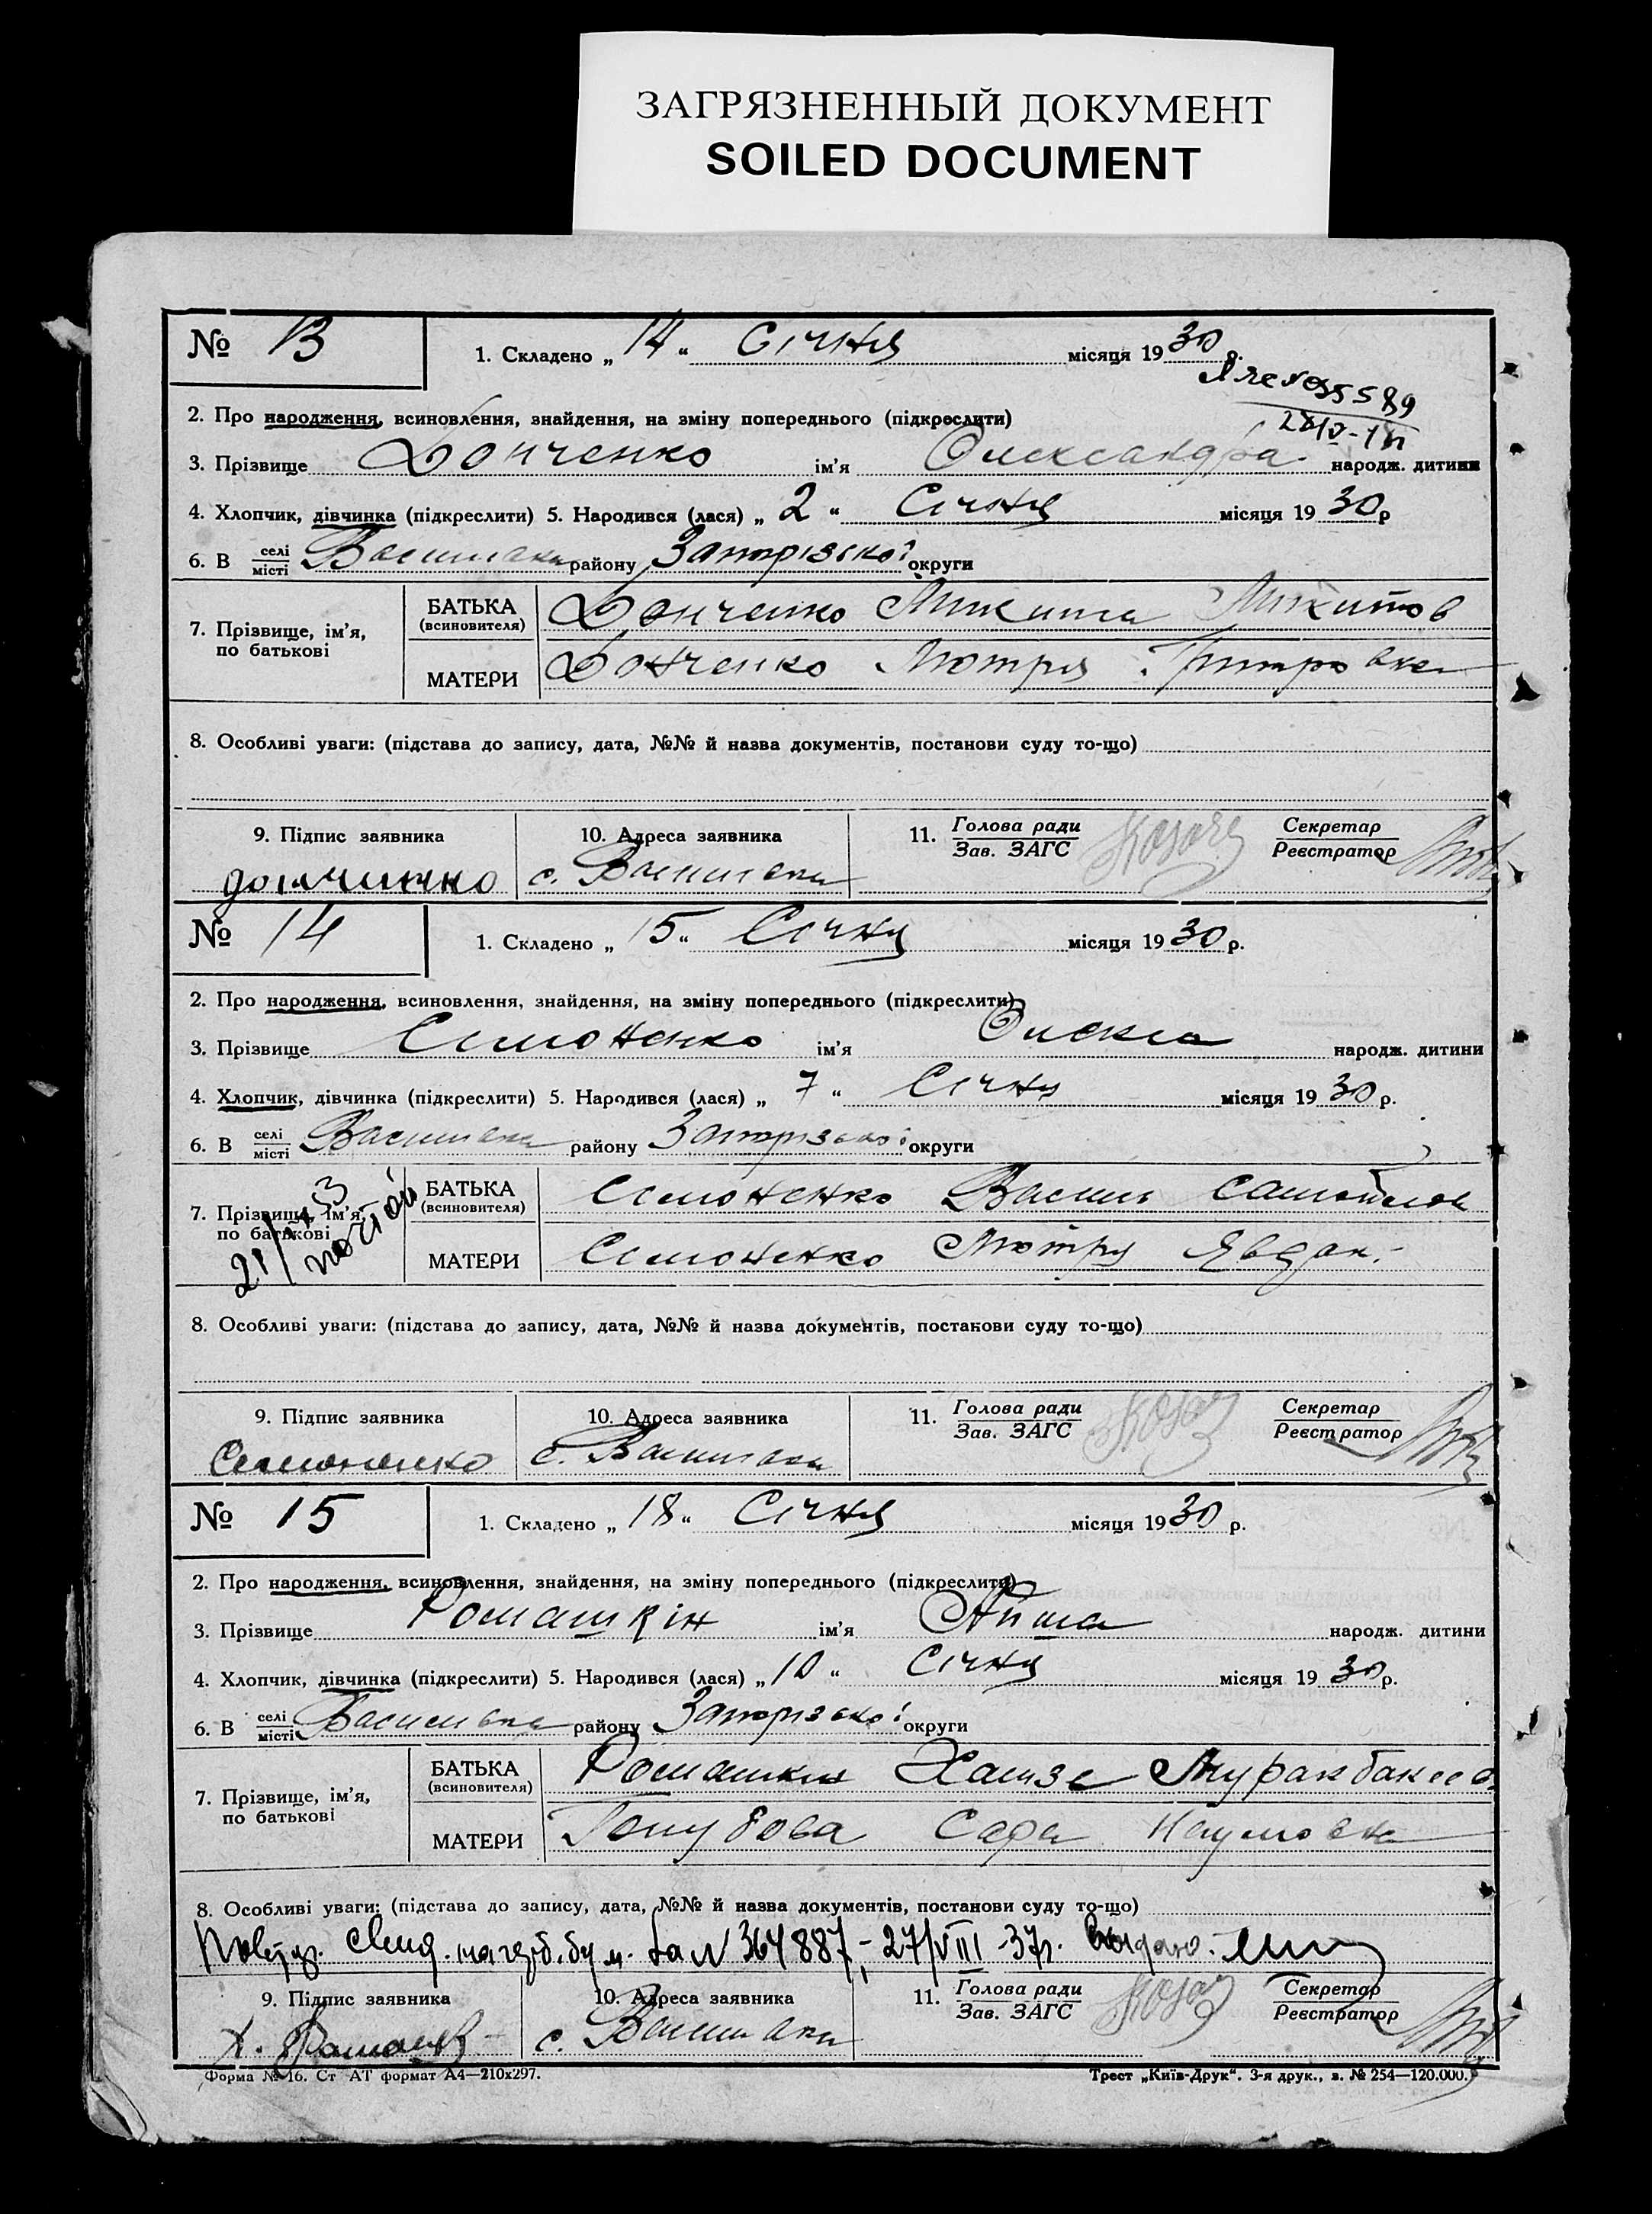 ЗАГРЯЗНЕННЫЙ ДОКУМЕНТ
SOILED DOCUMENT
№ 13
1. Складено „ 14 “ Січня місяця 1930 р.
2. Про народження, всиновлення, знайдення, на зміну попереднього (підкреслити)
3. Прізвище Донченко ім'я Олександра народж. дитини
4. Хлопчик, дівчинка (підкреслити) 5. Народився (лася) „ 2 “ Січня місяця 1930 р
6. В селі місті Василівка району Запорізької округи
7. Прізвище, ім'я, по батькові
БАТЬКА (всиновителя) Донченко Микита Микитов
МАТЕРИ Донченко Мотря
8. Особливі уваги: (підстава до запису, дата, №№ й назва документів, постанови суду то-що)
9. Підпис заявника 10. Адреса заявника 11. Голова ради Зав. ЗАГС Секретар Реєстратор
с. Василівка
№ 14
1. Складено „ 15 “ Січня місяця 1930 р.
2. Про народження, всиновлення, знайдення, на зміну попереднього (підкреслити)
3. Прізвище Симоненко ім'я Олекса народж. дитини
4. Хлопчик, дівчинка (підкреслити) 5. Народився (лася) „ 7 “ Січня місяця 1930 р.
6. В селі місті Василівка району Запорізької округи
7. Прізвище, ім'я, по батькові
БАТЬКА (всиновителя) Симоненко Василь Самойлов
МАТЕРИ Симоненко Мотря Явдок.
8. Особливі уваги: (підстава до запису, дата, №№ й назва документів, постанови суду то-що)
9. Підпис заявника 10. Адреса заявника 11. Голова ради Зав. ЗАГС Секретар Реєстратор
Семоненко с. Василівка
№ 15
1. Складено „ 18 “ Січня місяця 1930 р.
2. Про народження, всиновлення, знайдення, на зміну попереднього (підкреслити)
3. Прізвище Ромашкін ім'я народж. дитини
4. Хлопчик, дівчинка (підкреслити) 5. Народився (лася) „ 10 “ Січня місяця 1930 р.
6. В селі місті Василівка району Запорізької округи
7. Прізвище, ім'я, по батькові
БАТЬКА (всиновителя) Ромашкин Хамзе
МАТЕРИ Голубова Сара Наумовна
8. Особливі уваги: (підстава до запису, дата, №№ й назва документів, постанови суду то-що)
№ 364887, - 27/VIII - 37р.
9. Підпис заявника 10. Адреса заявника 11. Голова ради Зав. ЗАГС Секретар Реєстратор
с. Василівка
Форма № 16. Ст АТ формат А4—210х297. Трест „Київ-Друк“. 3-я друк., з. № 254—120.000.